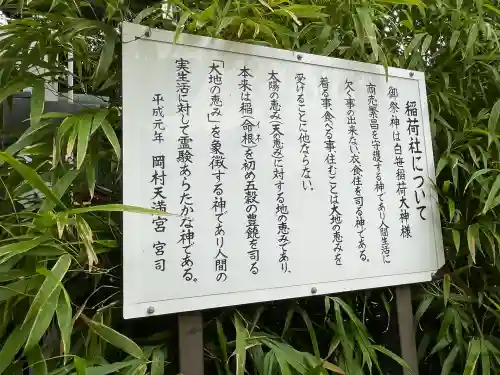 稲荷社について
御祭神は白笹稲荷大神様
商売繁昌を守護する神であり人間生活に
欠く事の出来ない衣食住を司る神である。
着る事・食べる事・住むことは大地の恵みを
受けることに他ならない。
太陽の恵み(天の恵み)に対する地の恵みであり、
本来は稲(命根)を初め五穀の豊饒を司る
イネ
「大地の恵み」を象徴する神であり人間の
実生活に対して霊験あらたかな神である。
平成元年 岡村天満宮 宮司